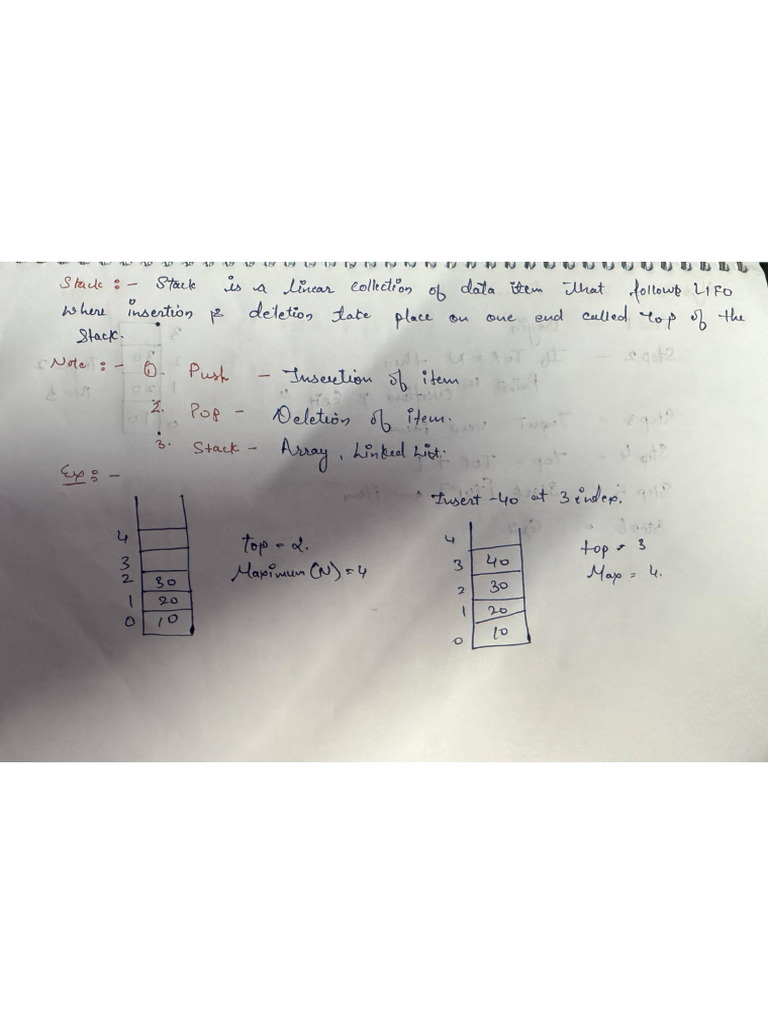 Stack :- Stack is a linear collection of data item that follows LIFO
where insertion & deletion take place on one end called top of the
Stack.
Note :- 1. Push - Insertion of item
2. Pop - Deletion of item.
3. Stack - Array, Linked List.
Ex :-
Insert -40 at 3 index.
4
3
2 30
1 20
0 10
top = 2.
Maximum (N) = 4
4
3 40
2 30
1 20
0 10
top = 3
Max = 4.